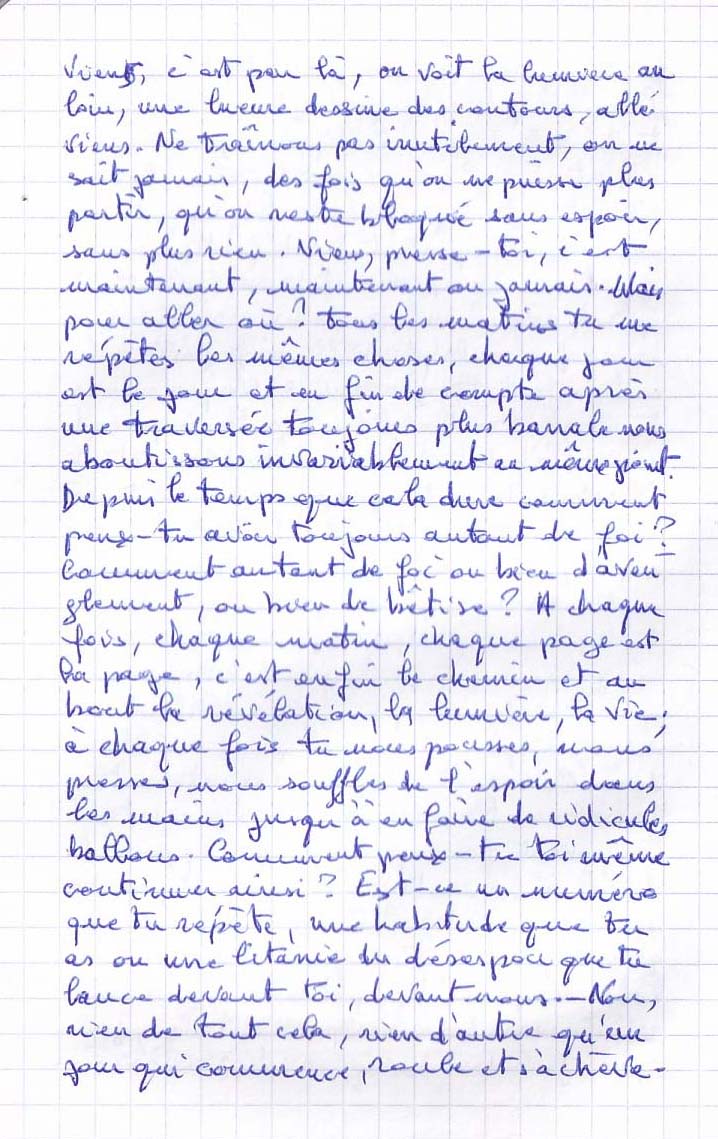 Viens, c'est par là, on voit la lumière au
loin, une lueur dessine des contours, allé
viens. Ne traînons pas inutilement, on ne
sait jamais, des fois qu'on ne puisse plus
partir, qu'on reste bloqué sans espoir,
sans plus rien. Viens, presse-toi, c'est
maintenant, maintenant ou jamais. Mais
pour aller où ? tous les matins tu me
répètes les mêmes choses, chaque jour
est le jour et en fin de compte après
une traversée toujours plus banale nous
aboutissons invariablement au même point.
Depuis le temps que cela dure comment
peux-tu avoir toujours autant de foi ?
Comment autant de foi ou bien d'aveu
glement, ou bien de bêtise ? A chaque
fois, chaque matin, chaque page est
la page, c'est enfin le chemin et au
bout la révélation, la lumière, la vie ;
à chaque fois tu nous pousses, nous
presses, nous souffles de l'espoir dans
les mains jusqu'à en faire de ridicules
ballons. Comment peux-tu toi même
continuer ainsi ? Est-ce un numéro
que tu répète, une habitude que tu
as ou une litanie du désespoir que tu
lance devant toi, devant nous. - Non,
rien de tout cela, rien d'autre qu'un
jour qui commence, roule et s'achève-